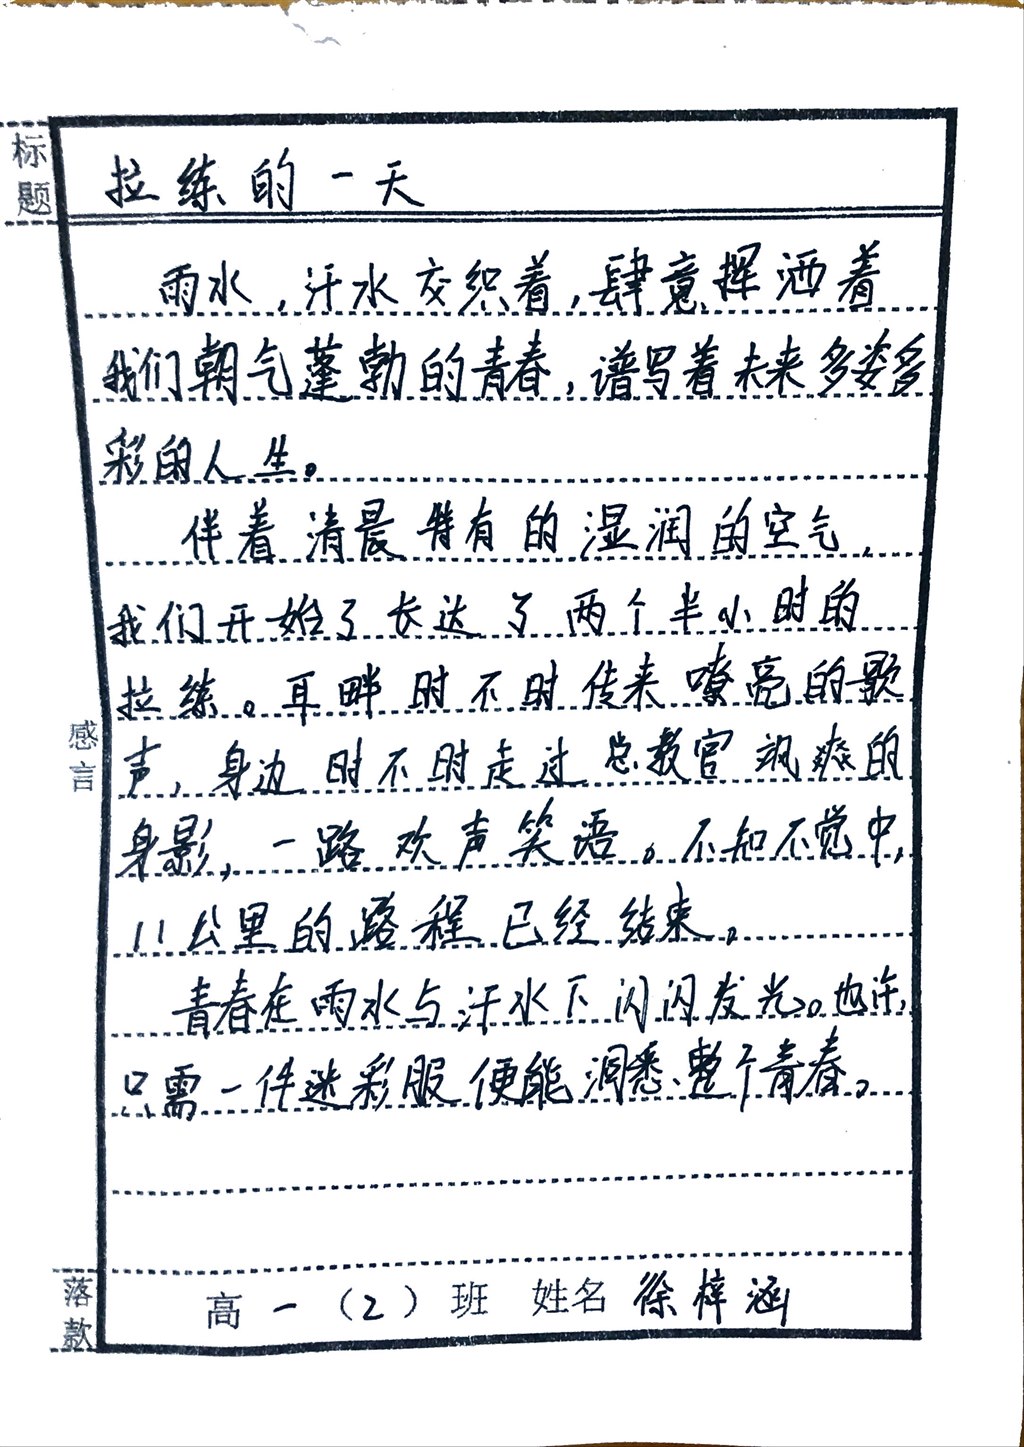 标题
拉练的一天
雨水,汗水交织着,肆意挥洒着
我们朝气蓬勃的青春,谱写着未来多姿多
彩的人生。
伴着清晨特有的湿润的空气,
我们开始了长达了两个半小时的
拉练。耳畔时不时传来嘹亮的歌
声,身边时不时走过总教官飒爽的
身影,一路欢声笑语。不知不觉中,
11公里的路程已经结束。
青春在雨水与汗水下闪闪发光。也许,
只需一件迷彩服便能洞悉整个青春。
感言
落款
高一(2)班 姓名 徐梓涵